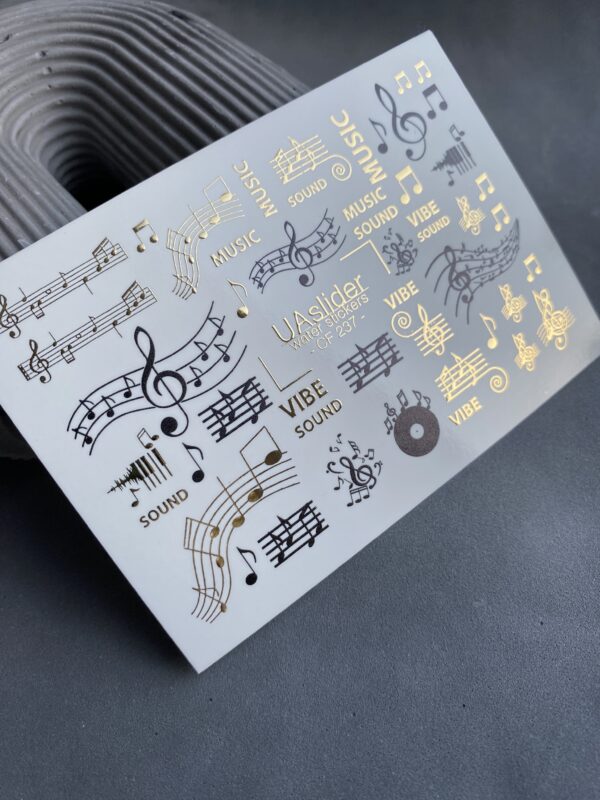 MUSIC
MUSIC
SOUND
MUSIC
MUSIC
SOUND
VIBE
SOUND
UAslider
water stickers
- CF 237 -
VIBE
VIBE
SOUND
VIBE
SOUND